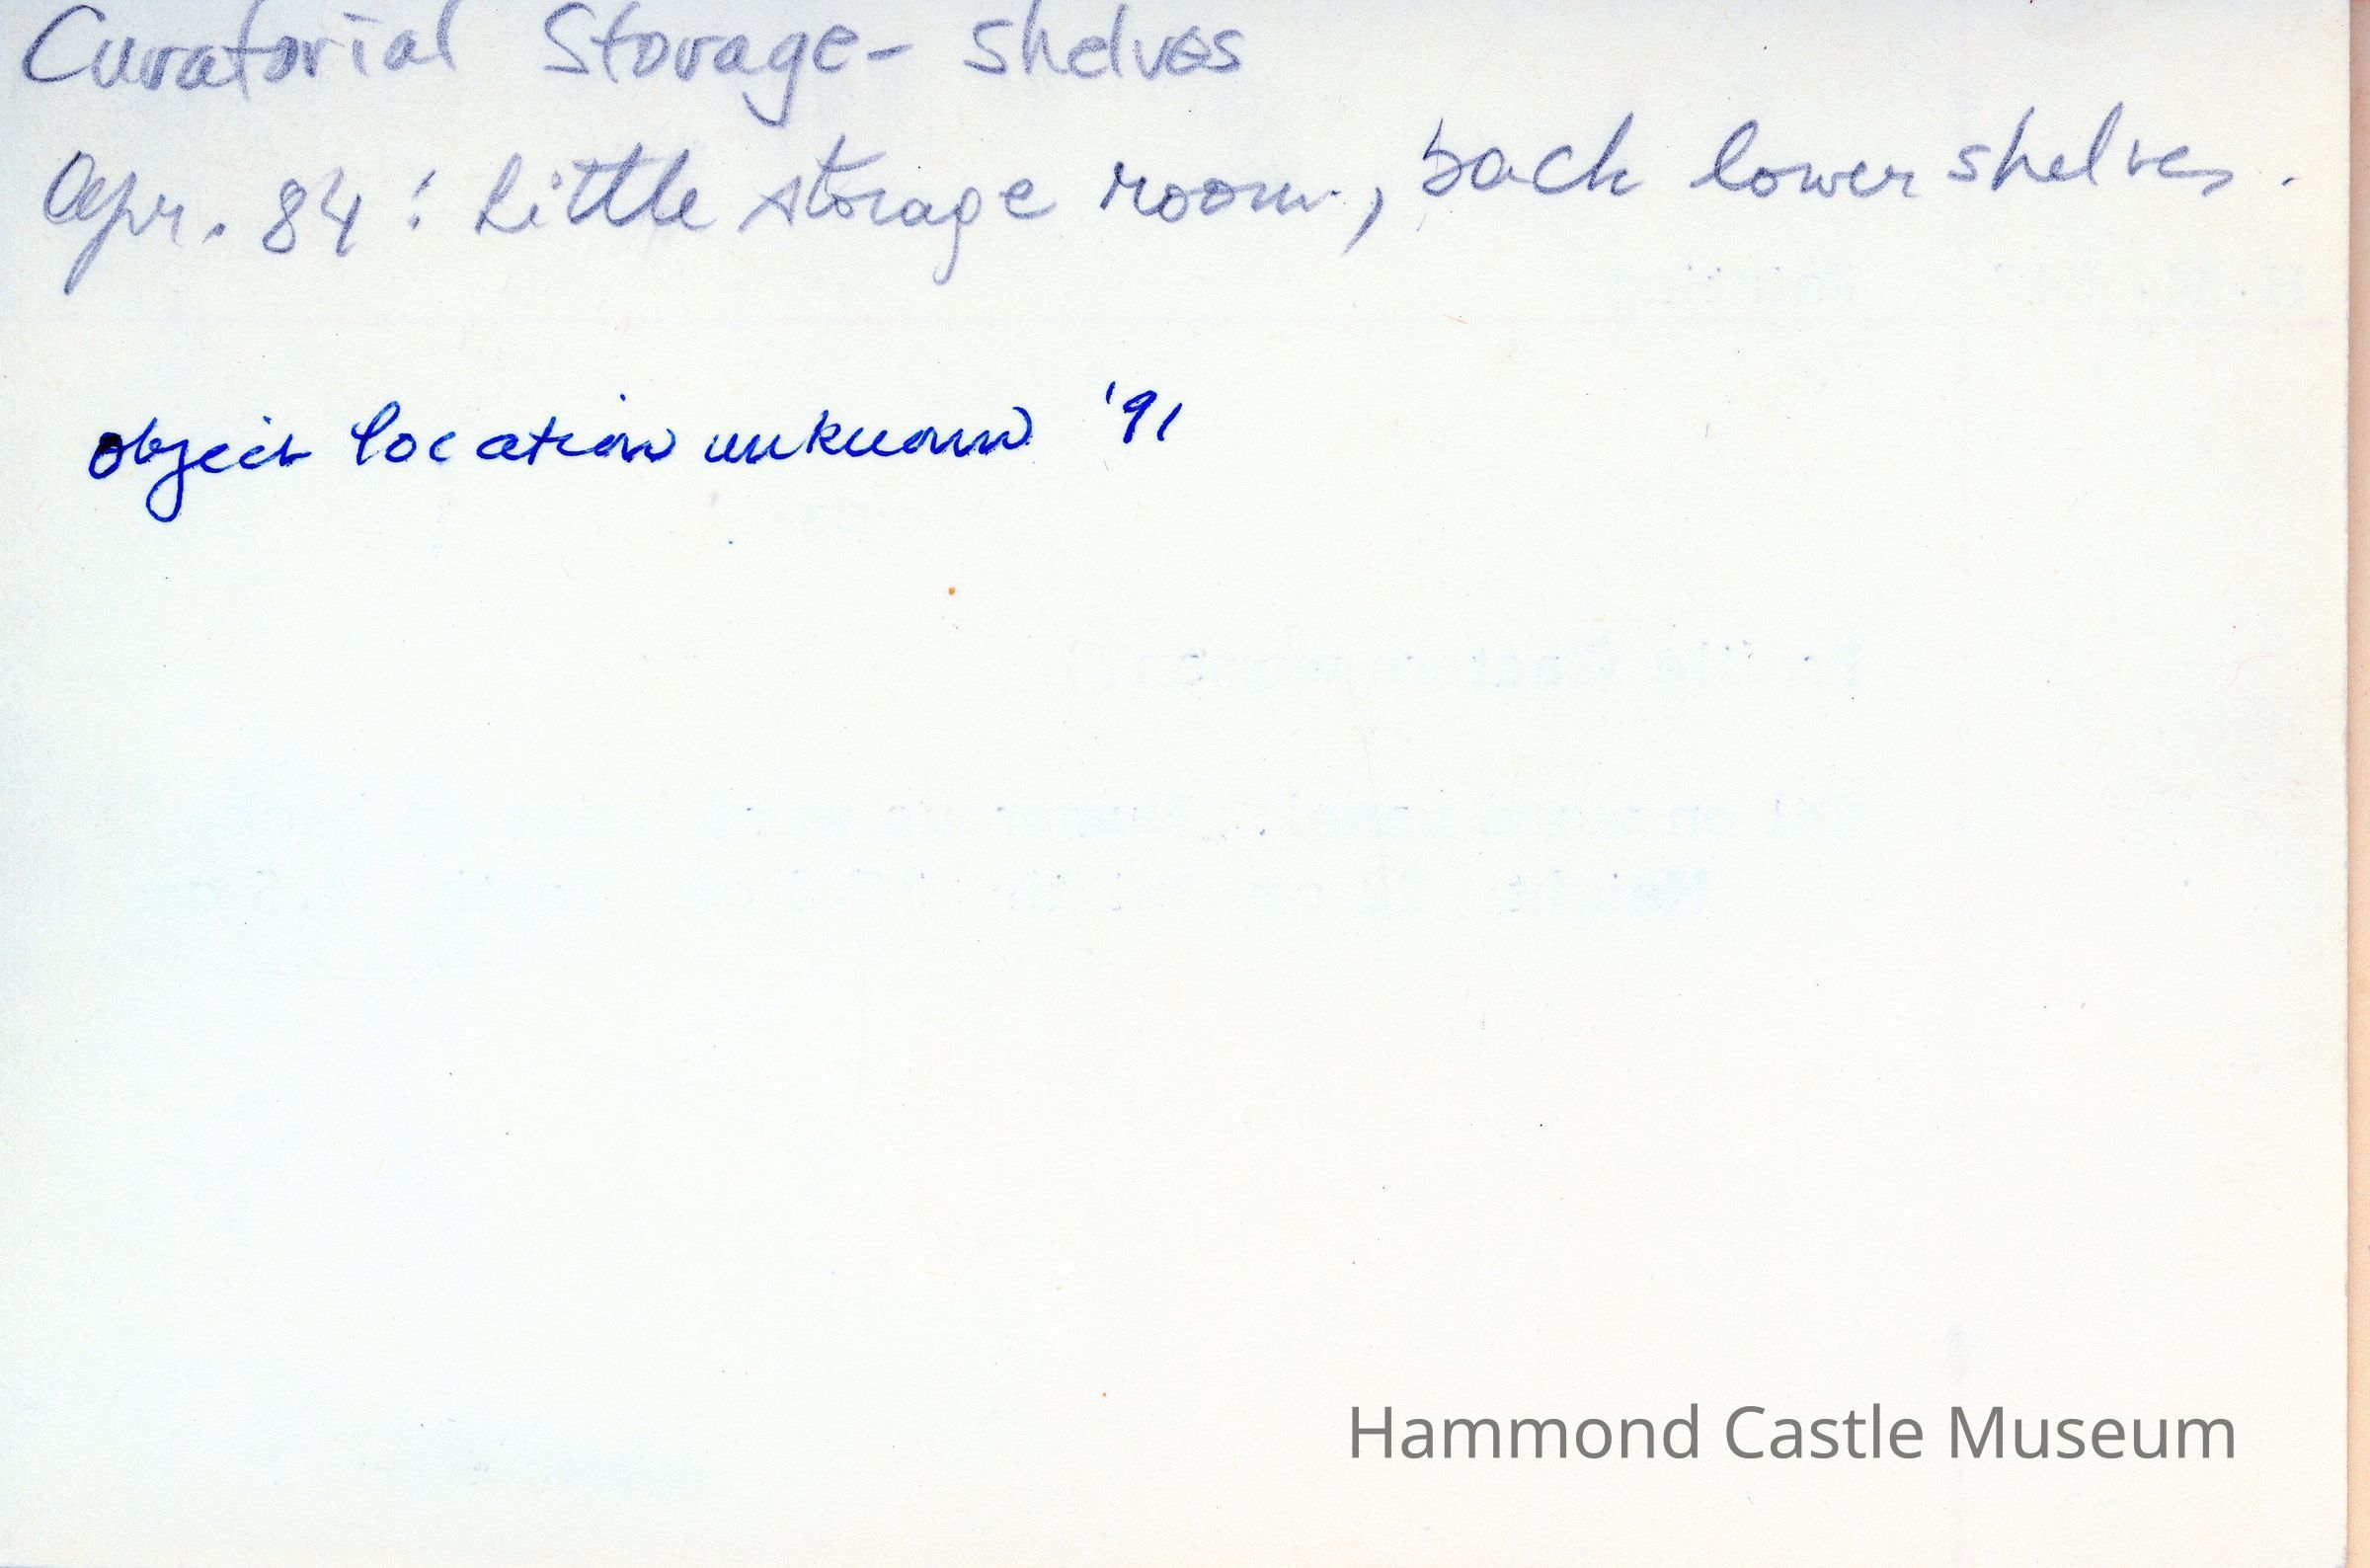 Curatorial Storage- Shelves
Apr. 84: Little storage room, back lower shelves.
object location unknown '91
Hammond Castle Museum